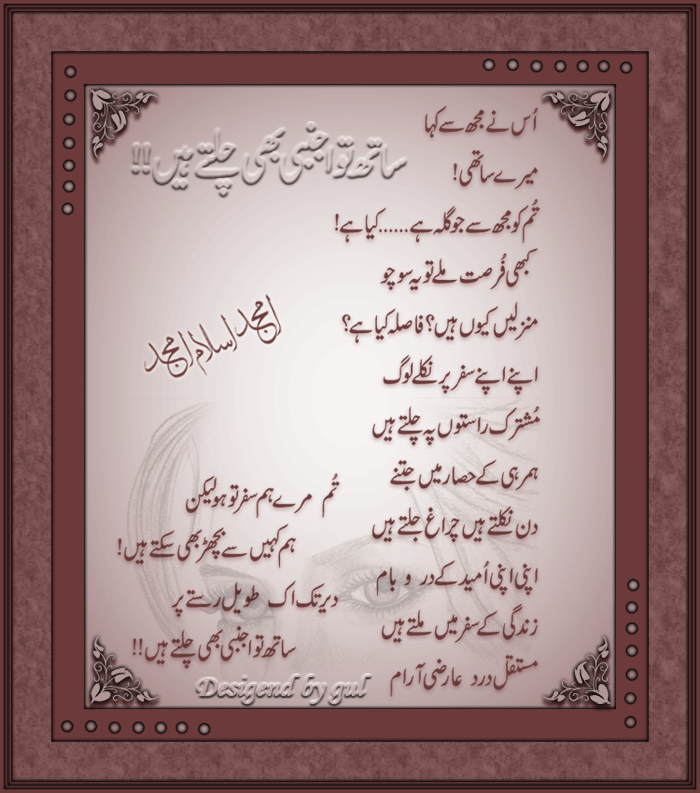 ساتھ تو اجنبی بھی چلتے ہیں!!
امجد اسلام امجد
اُس نے مجھ سے کہا
میرے ساتھی!
تُم کو مجھ سے جو گلہ ہے......کیا ہے!
کبھی فُرصت ملے تو یہ سوچو
منزلیں کیوں ہیں؟ فاصلہ کیا ہے؟
اپنے اپنے سفر پر نکلے لوگ
مُشترک راستوں پہ چلتے ہیں
ہمرہی کے حصار میں جتنے
دن نکلتے ہیں چراغ جلتے ہیں
اپنی اپنی اُمید کے در و بام
زندگی کے سفر میں ملتے ہیں
مستقل درد عارضی آرام
تُم مرے ہم سفر تو ہو لیکن
ہم کہیں سے بچھڑ بھی سکتے ہیں!
دیر تک اک طویل رستے پر
ساتھ تو اجنبی بھی چلتے ہیں!!
Desigend by gul